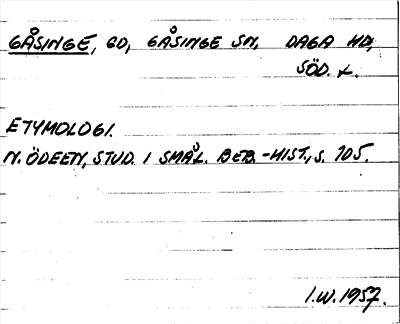 GÅSINGE, GD, GÅSINGE SN, DAGA HD,
SÖD. L.
ETYMOLOGI.
N. ÖDEEN, STUD. I SMÅL. BEB.-HIST., S. 105.
I.W. 1957.